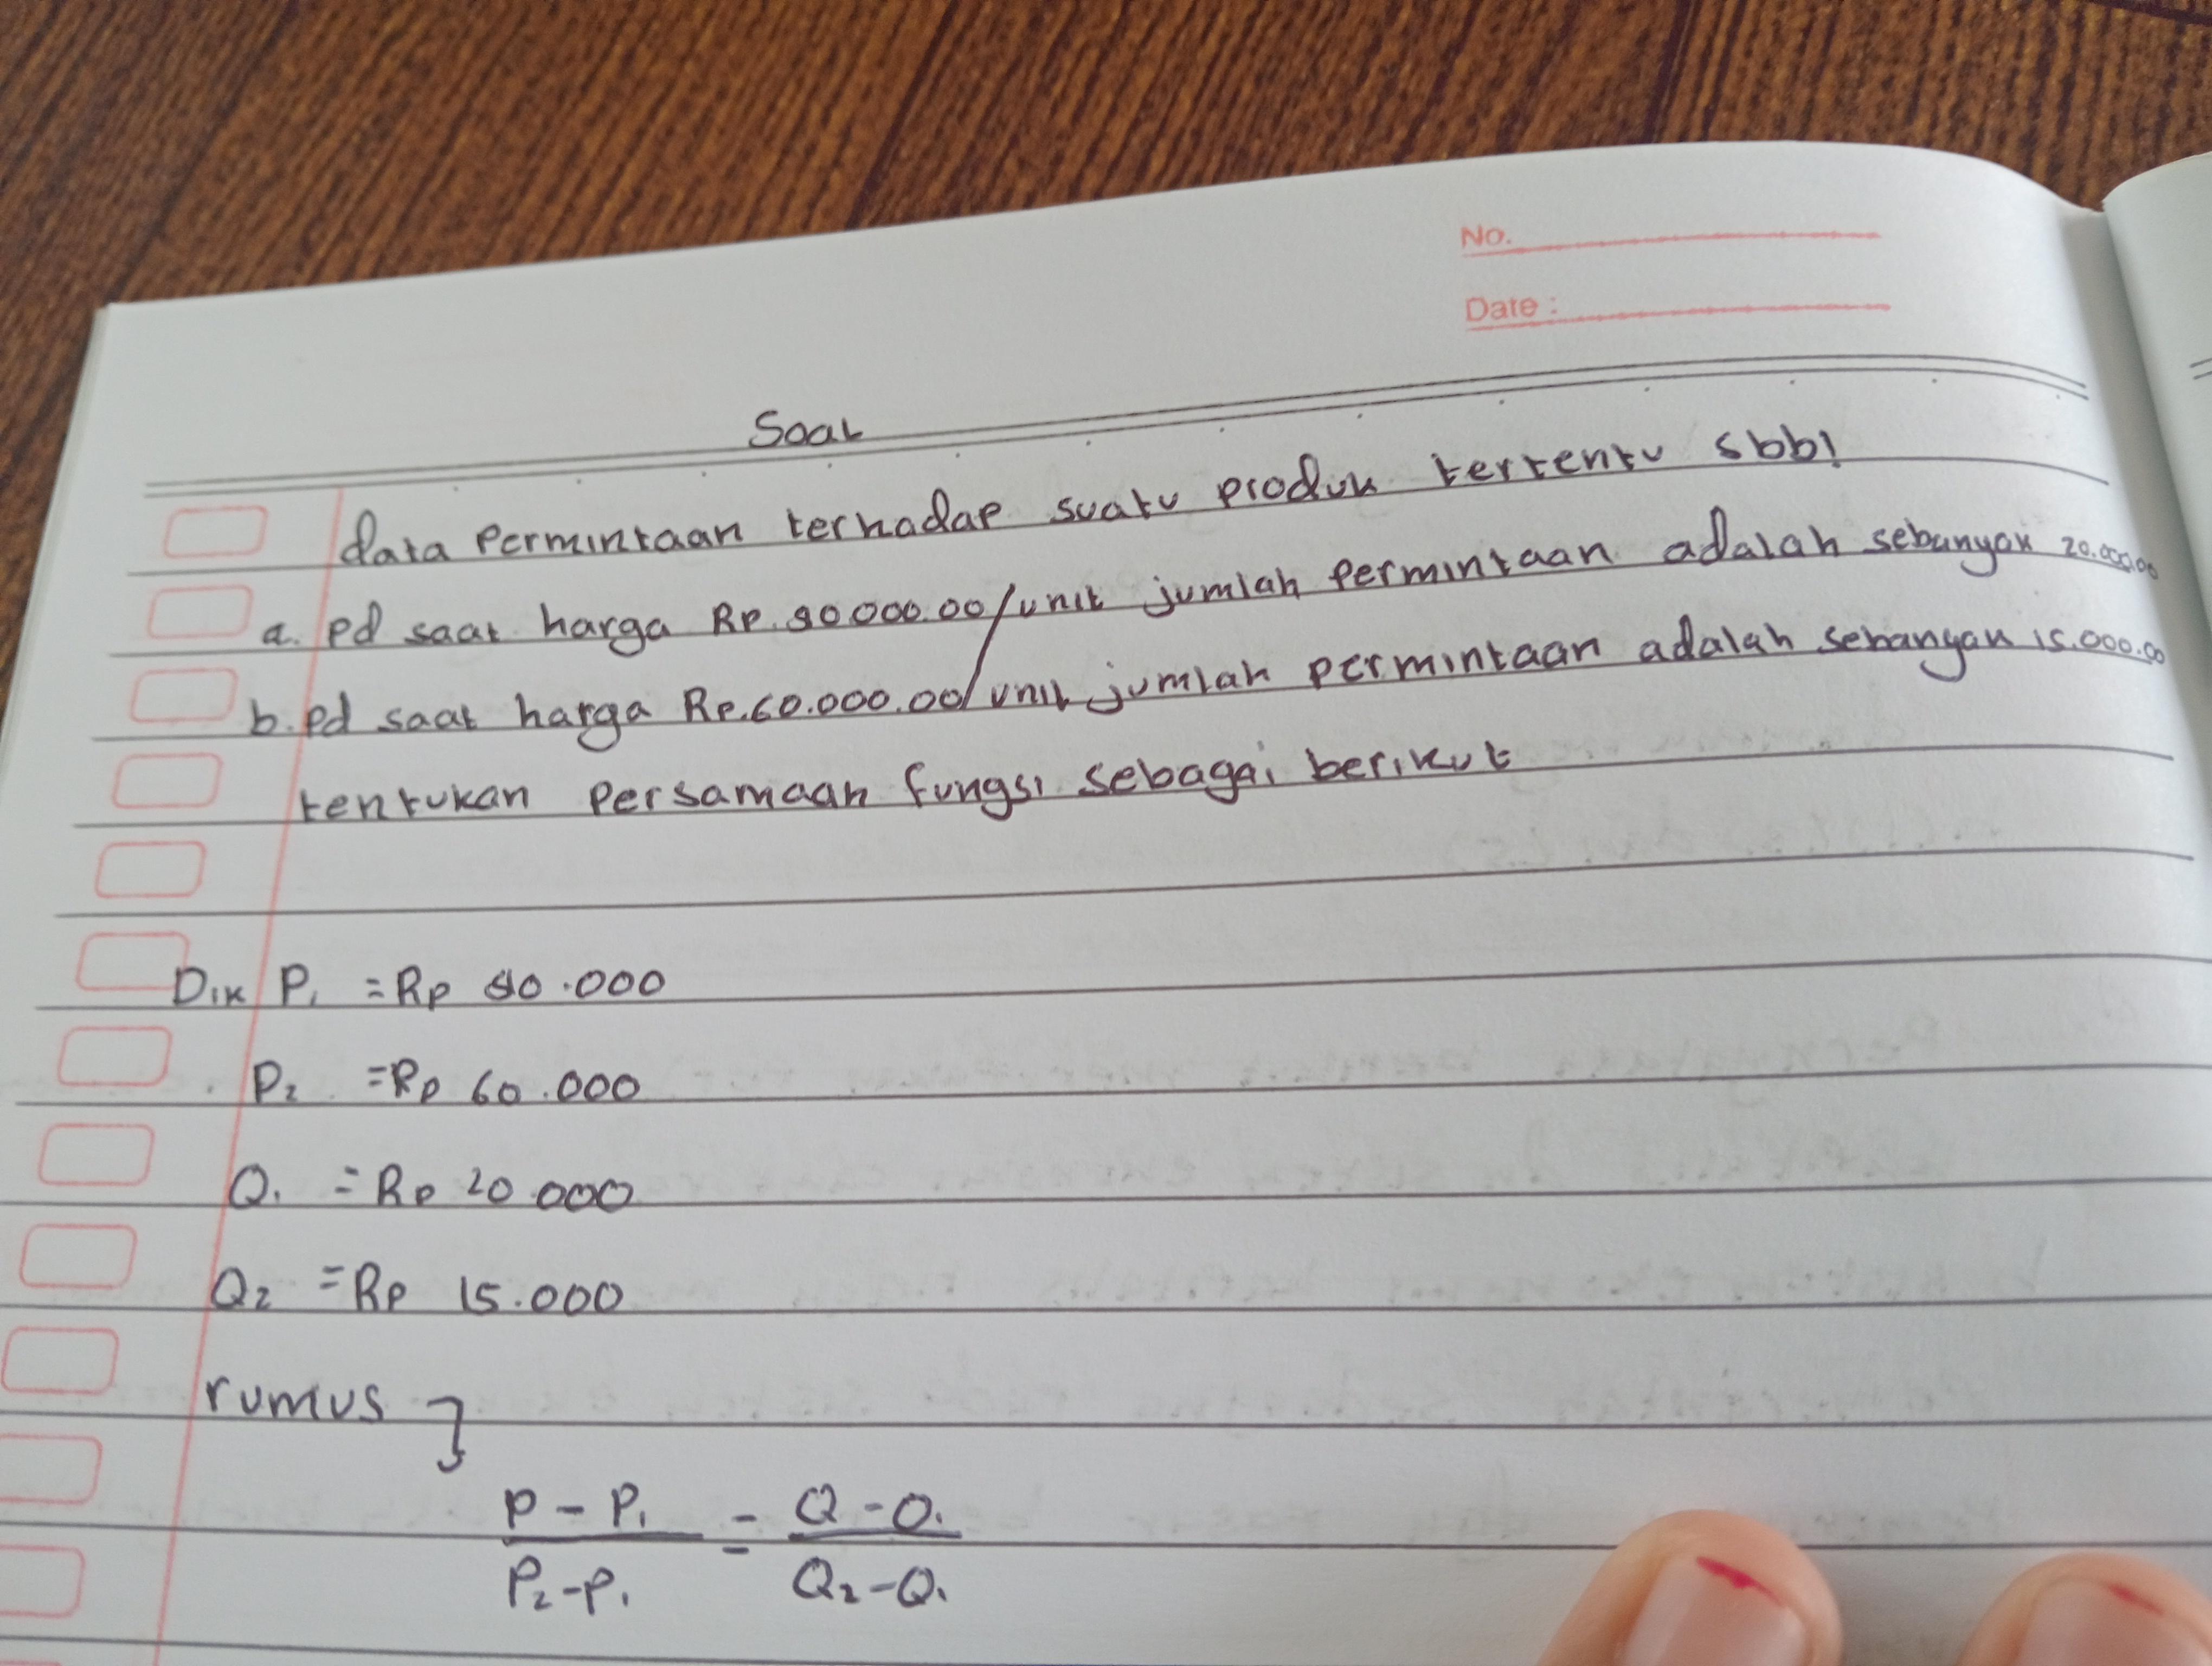 No.
Date :
Soal
data Permintaan terhadap suatu produk tertentu sbb!
a. pd saat harga Rp. 90000.00/unit jumlah permintaan adalah sebanyak 20.000.00
b. pd saat harga Rp. 60.000.00/unit jumlah permintaan adalah sebanyak 15.000.00
tentukan Persamaan fungsi sebagai berikut
Dik P₁ = Rp 40.000
P₂ = Rp 60.000
Q₁ = Rp 20 000
Q₂ = Rp 15.000
rumus }
P - P₁ / P₂ - P₁ = Q - Q₁ / Q₂ - Q₁